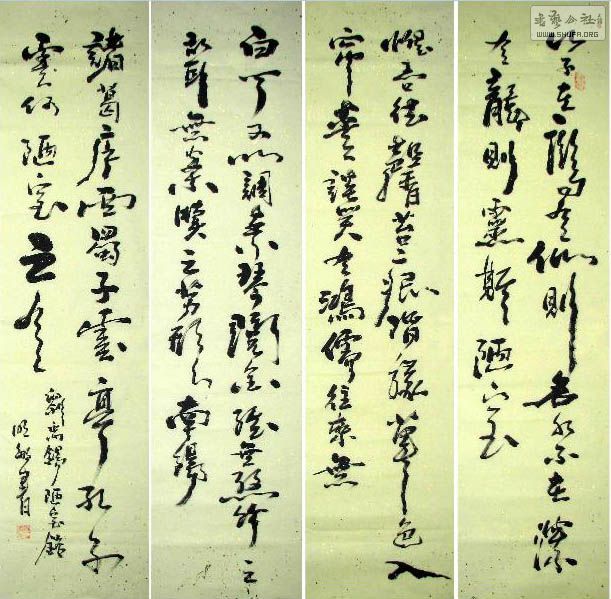 书艺公社
WWW.SHUFA.ORG
山不在高有仙則名水不在深
有龍則靈斯陋室
惟吾德馨苔痕階綠草色入
帘青談笑有鴻儒往來無
白丁可以調素琴閱金經無絲竹之
亂耳無案牘之勞形南陽
諸葛廬西蜀子雲亭孔子
雲何陋室之有
劉禹錫陋室銘